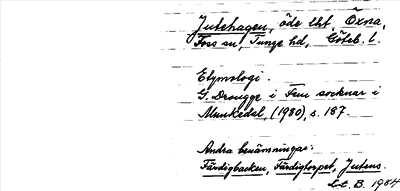 Jutehagen, öde lht, Öxna,
Foss sn, Tunge hd, Göteb. l.
Etymologi.
G. Drougge i Fem socknar i
Munkedal, (1980), s. 187.
Andra benämningar:
Färdigbacken, Färdigtorpet, Jutens.
B. 1984